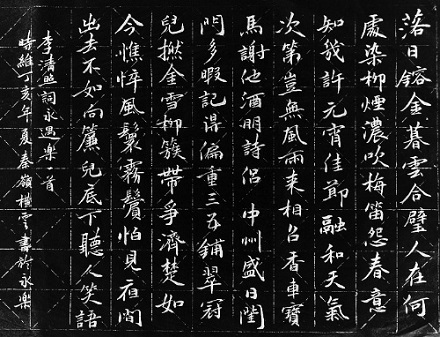 落日鎔金暮雲合璧人在何
處染柳煙濃吹梅笛怨春意
知幾許元宵佳節融和天氣
次第豈無風雨来相召香車寶
馬謝他酒朋詩侶中州盛日閨
門多暇記得偏重三五鋪翠冠
兒撚金雪柳簇帶爭濟楚如
今憔悴風鬟霧鬢怕見夜間
出去不如向簾兒底下聽人笑語
李清照詞永遇樂一首
時維丁亥年夏秦嶺橫雲書於永樂